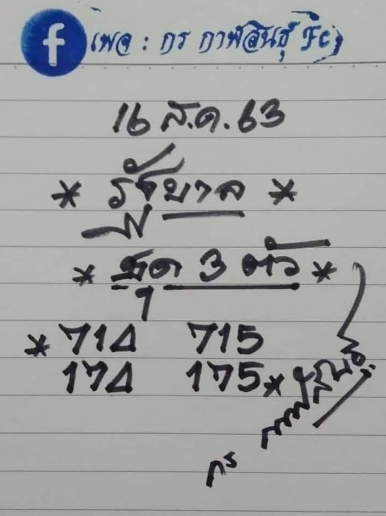 f เพจ : กร กาฬสินธุ์ Fc
16 ส.ค. 63
* รัฐบาล *
* ชุด 3 ตัว *
* 714 715
174 175 *
กร กาฬสินธุ์